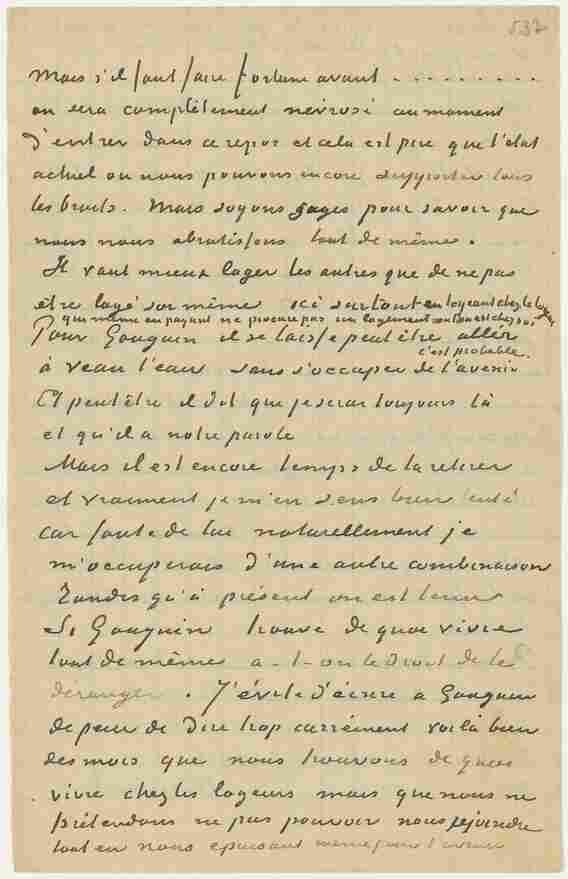 537
Mais s'il faut faire fortune avant . . . . . . . . .
on sera complètement névrosé au moment
d'entrer dans ce repos et cela est pire que l'état
actuel où nous pouvons encore supporter tous
les bruits. Mais soyons sages pour savoir que
nous nous abrutissons tout de même.
Il vaut mieux loger les autres que de ne pas
être logé soi même ici surtout en logeant chez le logeur
qui même en payant ne procure pas un logement où l'on est chez soi
Pour Gauguin il se laisse peut être aller
c'est probable.
à veau l'eau sans s'occuper de l'avenir
Et peut être il dit que je serai toujours là
et qu'il a notre parole
Mais il est encore temps de la retirer
et vraiment je m'en sens bien tenté
car faute de lui naturellement je
m'occuperais d'une autre combinaison
Tandis qu'à présent on est tenu
Si Gauguin trouve de quoi vivre
tout de même a-t-on le droit de le
déranger. J'évite d'écrire a Gauguin
de peur de dire trop carrément voilà bien
des mois que nous trouvons de quoi
vivre chez les logeurs mais que nous ne
prétendons ne pas pouvoir nous rejoindre
tout en nous épuisant même pour l'avenir